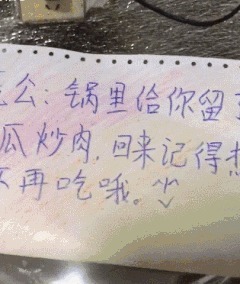 公：锅里给你留
瓜炒肉，回来记得
再吃哦。